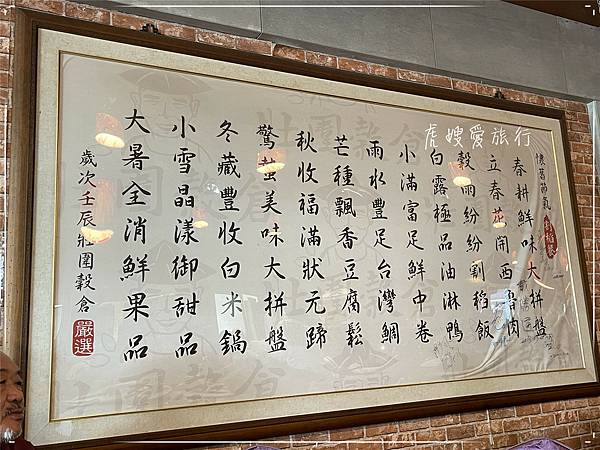 虎嫂愛旅行
懷舊節氣
割稻飯
春耕鮮味大拼盤
立春花開西魯肉
穀雨紛紛割稻飯
白露極品油淋鴨
小滿富足鮮中卷
雨水豐足台灣鯛
芒種飄香豆腐鬆
秋收福滿狀元蹄
驚蟄美味大拼盤
冬藏豐收白米鍋
小雪晶漾御甜品
大暑全消鮮果品
歲次壬辰壯圍穀倉
嚴選
壯圍穀倉